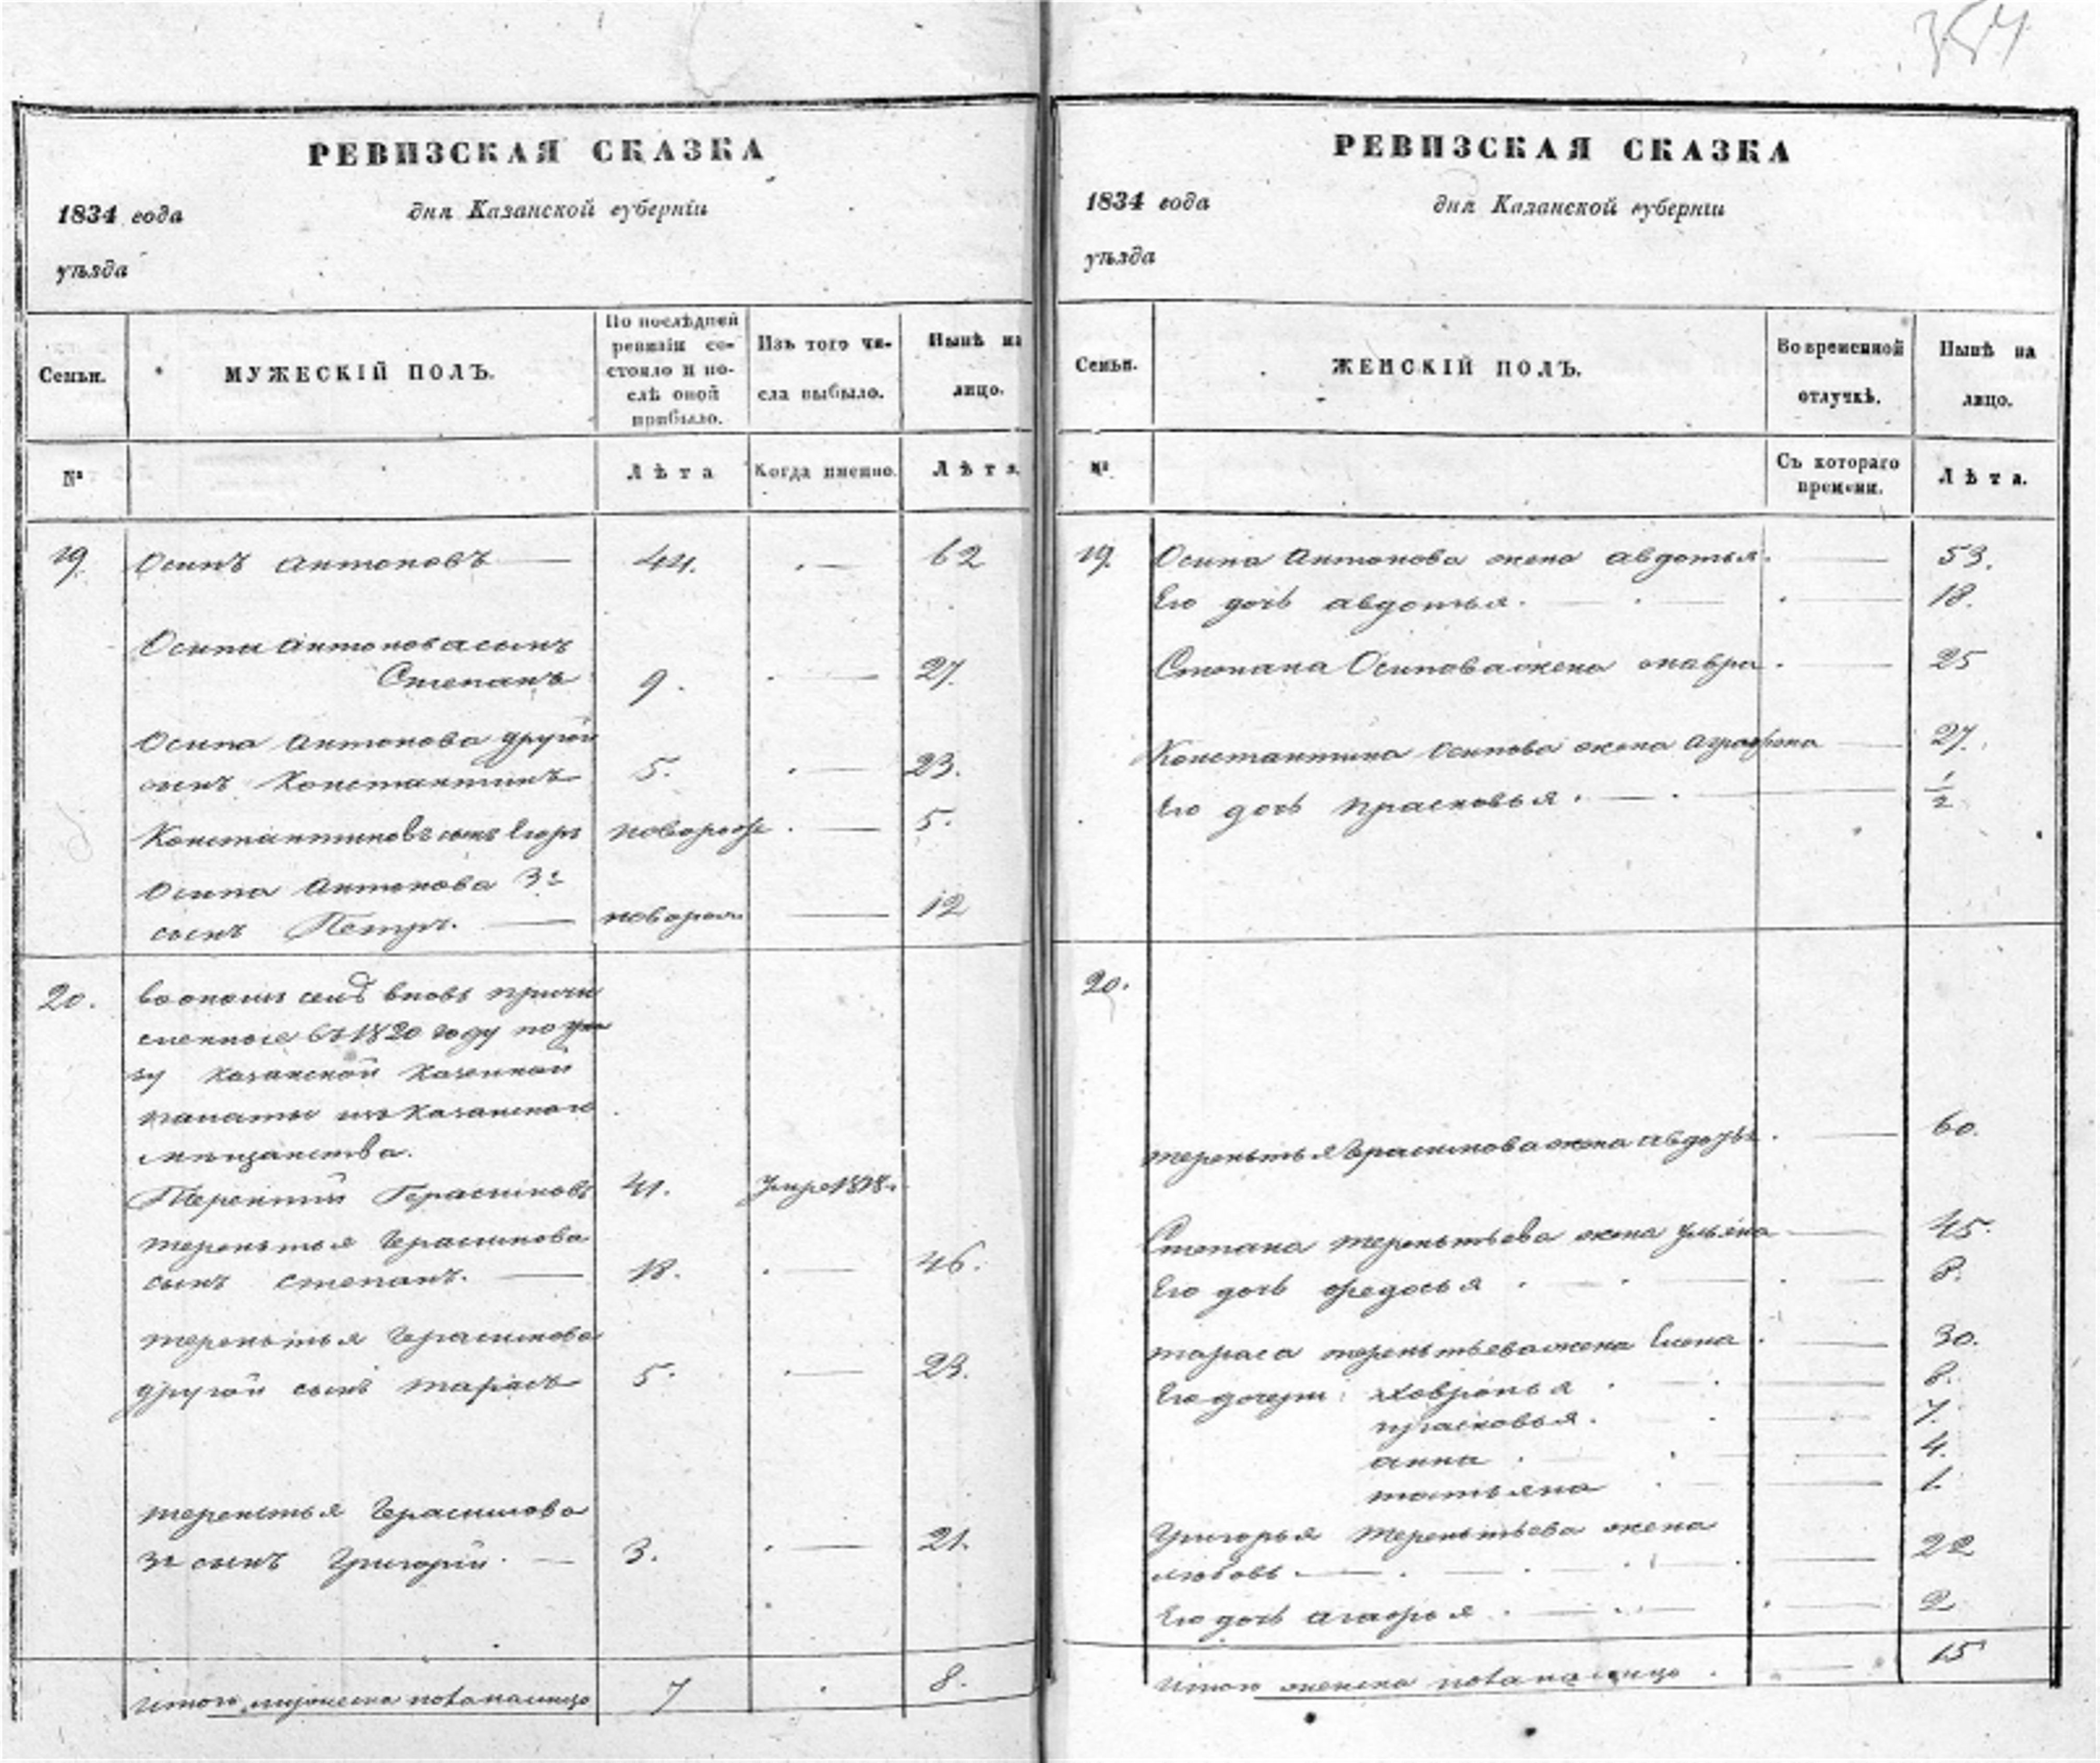 354
РЕВИЗСКАЯ СКАЗКА
1834 года
дня Казанской губерніи
уѣзда
Семьи.
МУЖЕСКІЙ ПОЛЪ.
По послѣдней
ревизіи со-
стояло и по-
слѣ оной
прибыло.
Изъ того чи-
сла выбыло.
Нынѣ на
лицо.
№
Лѣта
Когда именно.
Лѣта
19. Осипъ Антоновъ 44. 62
Осипа Антонова сынъ
Степанъ 9. 27.
Осипа Антонова другой
сынъ Константинъ 5. 23.
Константиновъ сынъ Егоръ новорож 5.
Осипа Антонова 3й
сынъ Петръ. новорож 12
20. вновь причи
сленные въ 1820 году по ука
зу Казанской Казенной
палаты изъ Казанского
мѣщанства.
Терентій Герасимовъ 41. умре 1818.
Терентья Герасимова
сынъ Степанъ. 18. 46.
Терентья Герасимова
другой сынъ Тарасъ 5. 23.
Терентья Герасимова
3й сынъ Григорій. 3. 21.
Итого мужеска пола налицо 7 8.
РЕВИЗСКАЯ СКАЗКА
1834 года
дня Казанской губерніи
уѣзда
Семьи.
ЖЕНСКІЙ ПОЛЪ.
Во временной
отлучкѣ.
Нынѣ на
лицо.
№
Съ котораго
времени.
Лѣта.
19. Осипа Антонова жена Авдотья. 53.
Его дочь Авдотья. 18.
Степана Осипова жена Мавра. 25
Константина Осипова жена Аграфена 27.
Его дочь Прасковья. 1/2
20.
Терентья Герасимова жена Авдотья. 60.
Степана Терентьева жена Ульяна 45.
Его дочь Федосья. 8.
Тараса Терентьева жена Елена. 30.
Его дочери: Ховронья 8.
Прасковья. 7.
Анна 4.
Татьяна 1.
Григорья Терентьева жена
Любовь. 22
Его дочь Агафья. 2
Итого женска пола налицо. 15